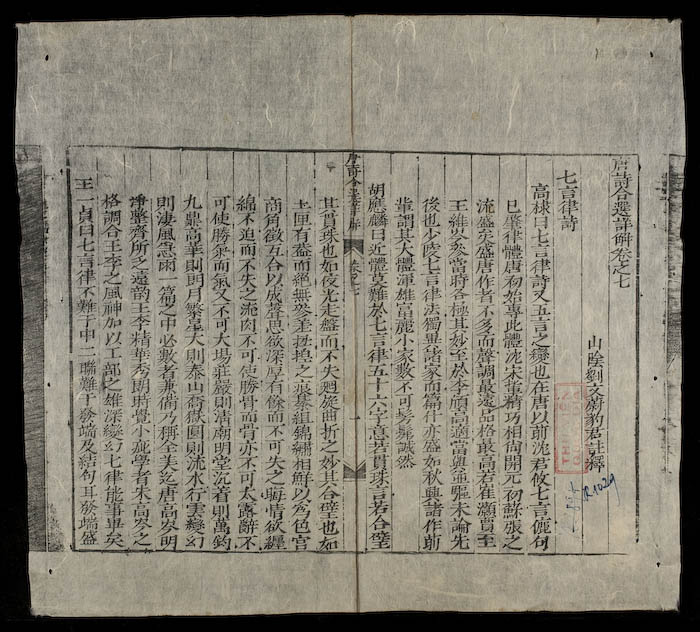 唐詩合選詳解卷之七
山陰劉文蔚豹君註釋
七言律詩
高棅曰七言律詩又五言之變也在唐以前沈君攸七言儷句
已肇律體唐初始專此體沈宋輩精巧相尚開元初蘇張之
流盛矣盛唐作者不多而聲調最遠品格最高若崔顥賈至
王維岑參當時各極其妙至於李頎高適當與並驅未論先
後也少陵七言律法獨異諸家而篇什亦盛如秋興諸作前
輩謂其大體渾雄富麗小家數不可髣髴誠然
胡應麟曰近體莫難於七言律五十六字意若貫珠言若合璧
唐詩合選詳解 卷之七
其貫珠也如夜光走盤而不失迴旋曲折之妙其合璧也如
玉匣有蓋而絕無參差扭捏之痕綦組錦繡相鮮以為色宮
商角徵互合以成聲思欲深厚有餘而不可失之晦情欲纏
綿不迫而不可失之流肉不可使勝骨而骨亦不可太露辭不
可使勝氣而氣又不可大場莊嚴則清廟明堂沉着則萬鈞
九鼎高華則朗月繁星大則泰山喬嶽圓則流水行雲變幻
則淒風急雨一篇之中必數者兼備乃稱全美迄唐高岑明
淨整齊所乏遠韵王李精華秀朗時覺小疵學者求高岑之
格調合王李之風神加以工部之雄深變幻七律能事畢矣
王一貞曰七言律不難于中二聯難于發端及結句耳發端盛
R.1029